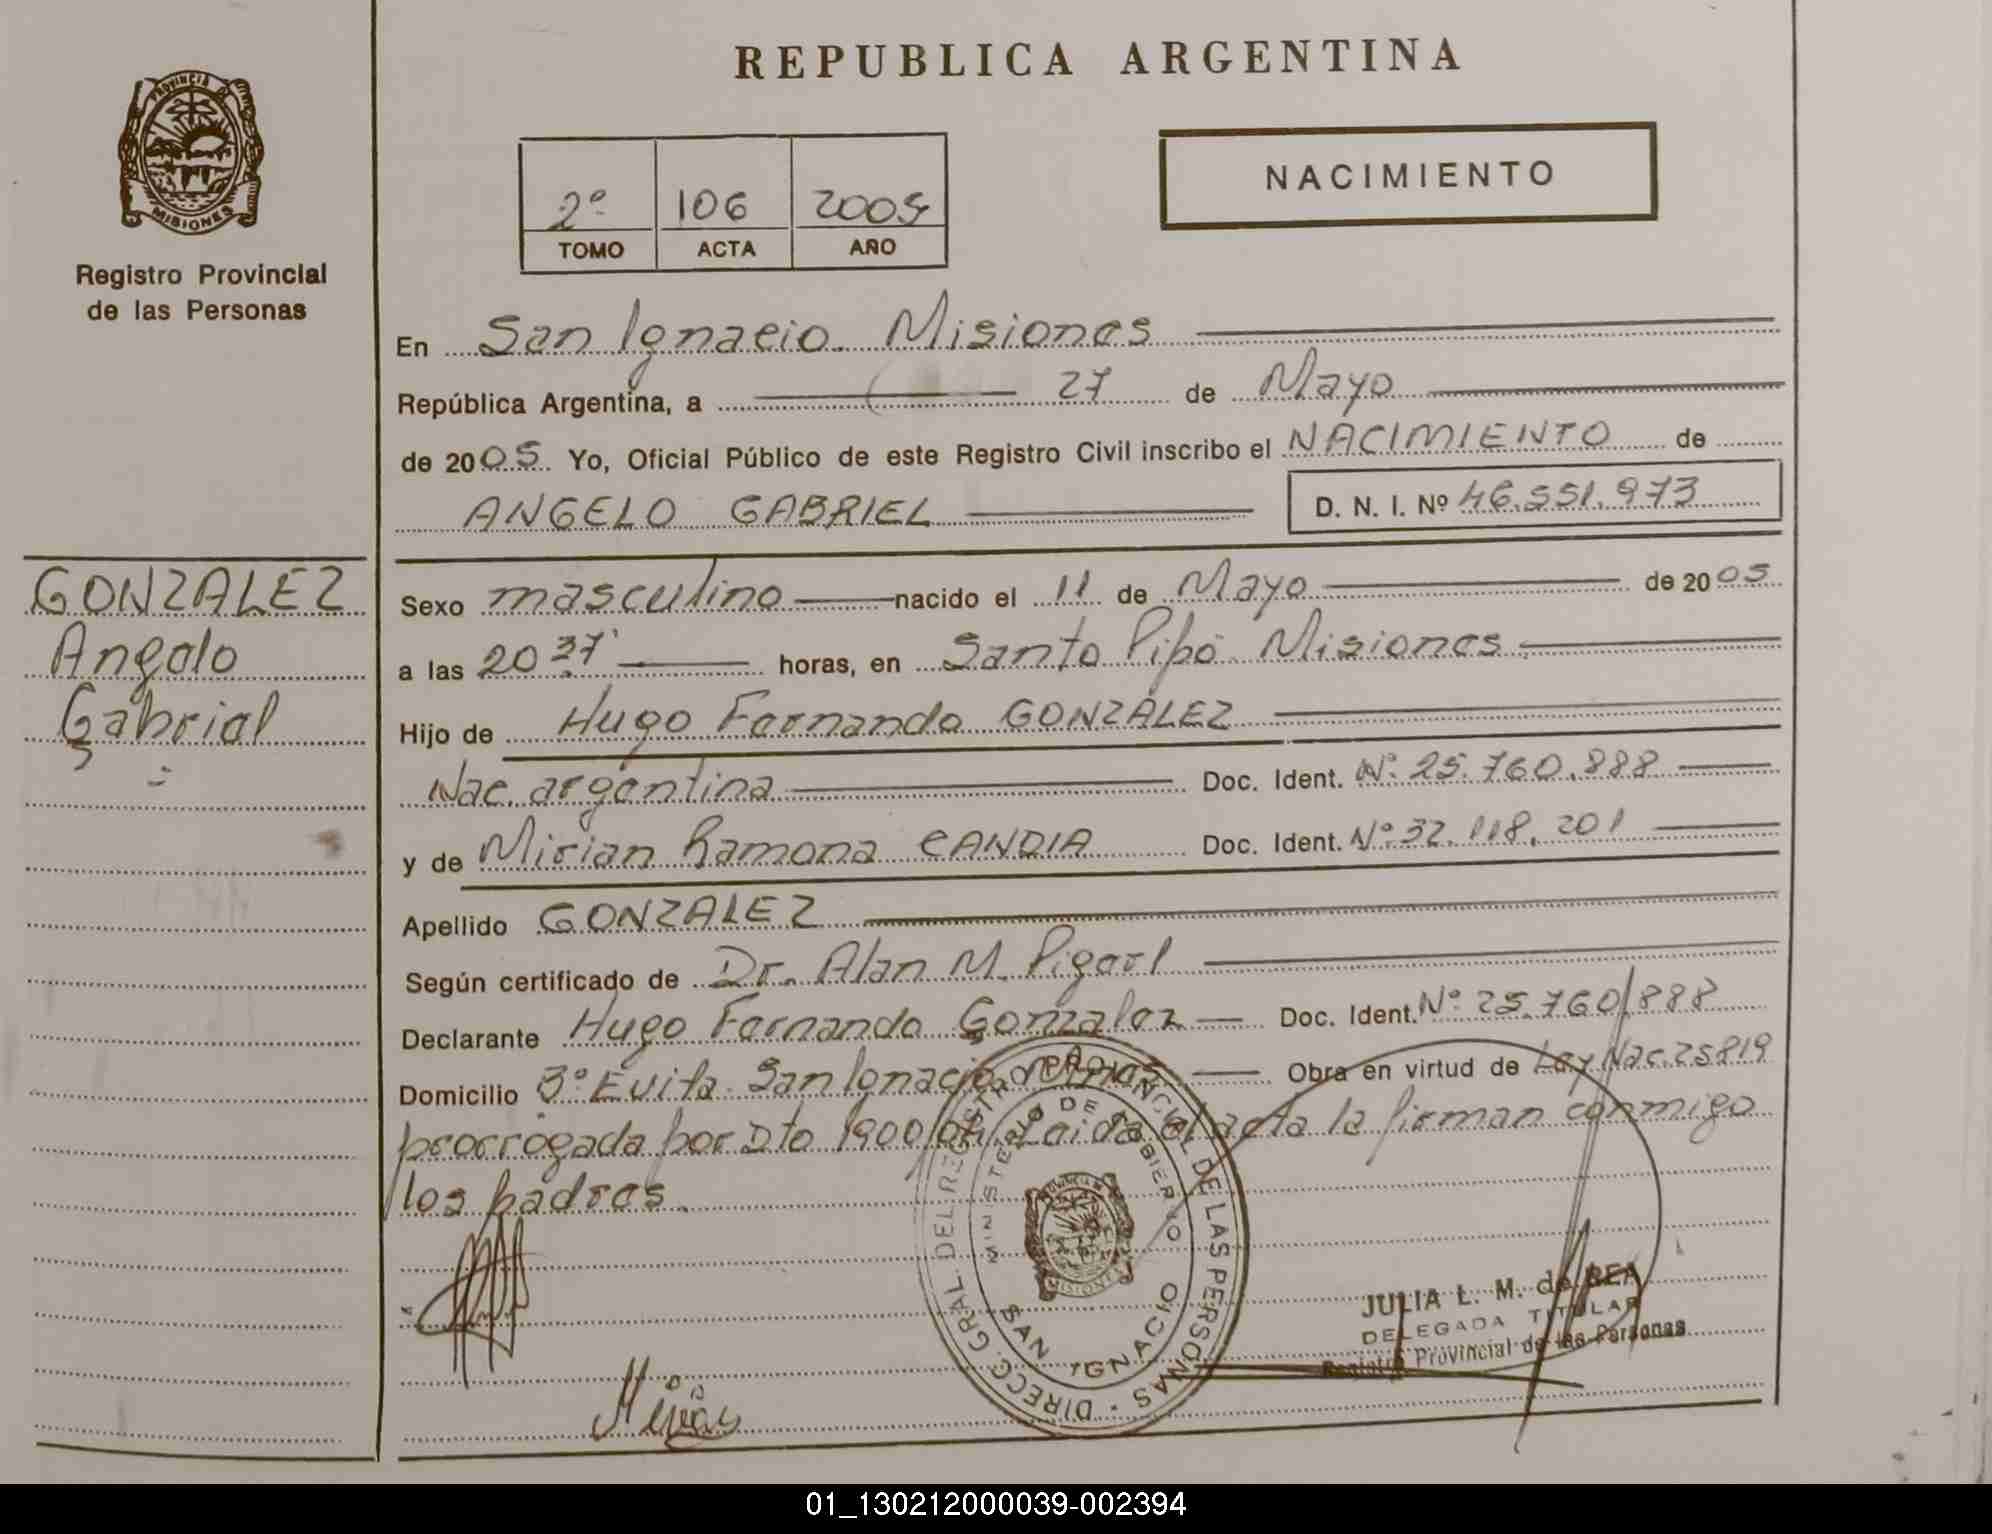 REPUBLICA ARGENTINA
PROVINCIA DE
MISIONES
Registro Provincial
de las Personas
2º 106 2005
TOMO ACTA AÑO
NACIMIENTO
En San Ignacio. Misiones
República Argentina, a 27 de Mayo
de 2005 Yo, Oficial Público de este Registro Civil inscribo el NACIMIENTO de
ANGELO GABRIEL D. N. I. Nº 46.551.973
GONZALEZ
Angelo
Gabriel
Sexo masculino nacido el 11 de Mayo de 2005
a las 20 37' horas, en Santo Pipó Misiones
Hijo de Hugo Fernando GONZÁLEZ
Nac. argentina Doc. Ident. Nº 25.760.888
y de Mirian Ramona CANDIA Doc. Ident. Nº 32.118.201
Apellido GONZALEZ
Según certificado de Dr. Alan M.
Declarante Hugo Fernando Gonzalez Doc. Ident. Nº 25.760.888
Domicilio Bº Evita. San Ignacio. Obra en virtud de Ley Nac. 25819
prorrogada por Dto 1900/04. Leída el acta la firman conmigo
los padres.
DIRECC. GRAL. DEL REGISTRO PROVINCIAL DE LAS PERSONAS
MINISTERIO DE GOBIERNO
SAN IGNACIO
JULIA L. M. de REA
DELEGADA TITULAR
Registro Provincial de las Personas
01_130212000039-002394